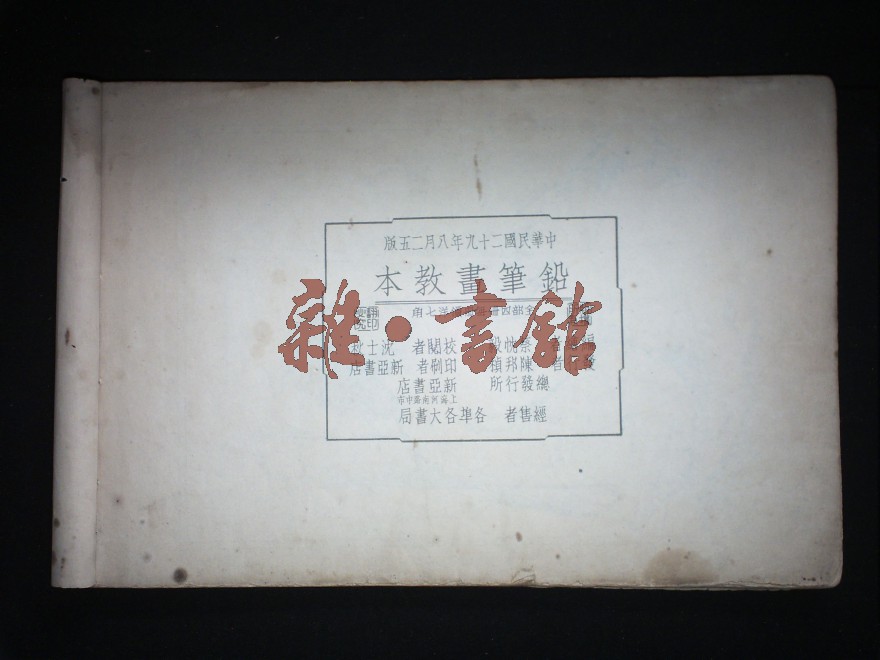 中華民國二十九年八月二五版
鉛筆畫教本
全部四 七角
校閱者 沈士秋
者 陳邦 印刷者 新亞書店
總發行所 新亞書店
上海河南路中市
經售者 各埠各大書局
雜·書館